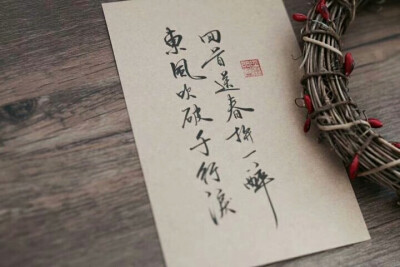 回首送春拚一醉
東風吹破千行淚